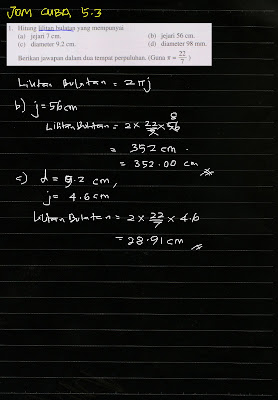 JOM CUBA 5.3
1. Hitung lilitan bulatan yang mempunyai
(a) jejari 7 cm. (b) jejari 56 cm.
(c) diameter 9.2 cm. (d) diameter 98 mm.
Berikan jawapan dalam dua tempat perpuluhan. (Guna π = 22/7)
Lilitan Bulatan = 2πj
b) j = 56 cm
Lilitan Bulatan = 2 × 22/7 × 56 8
= 352 cm.
= 352.00 cm
c) d = 9.2 cm,
j = 4.6 cm
Lilitan Bulatan = 2 × 22/7 × 4.6
= 28.91 cm